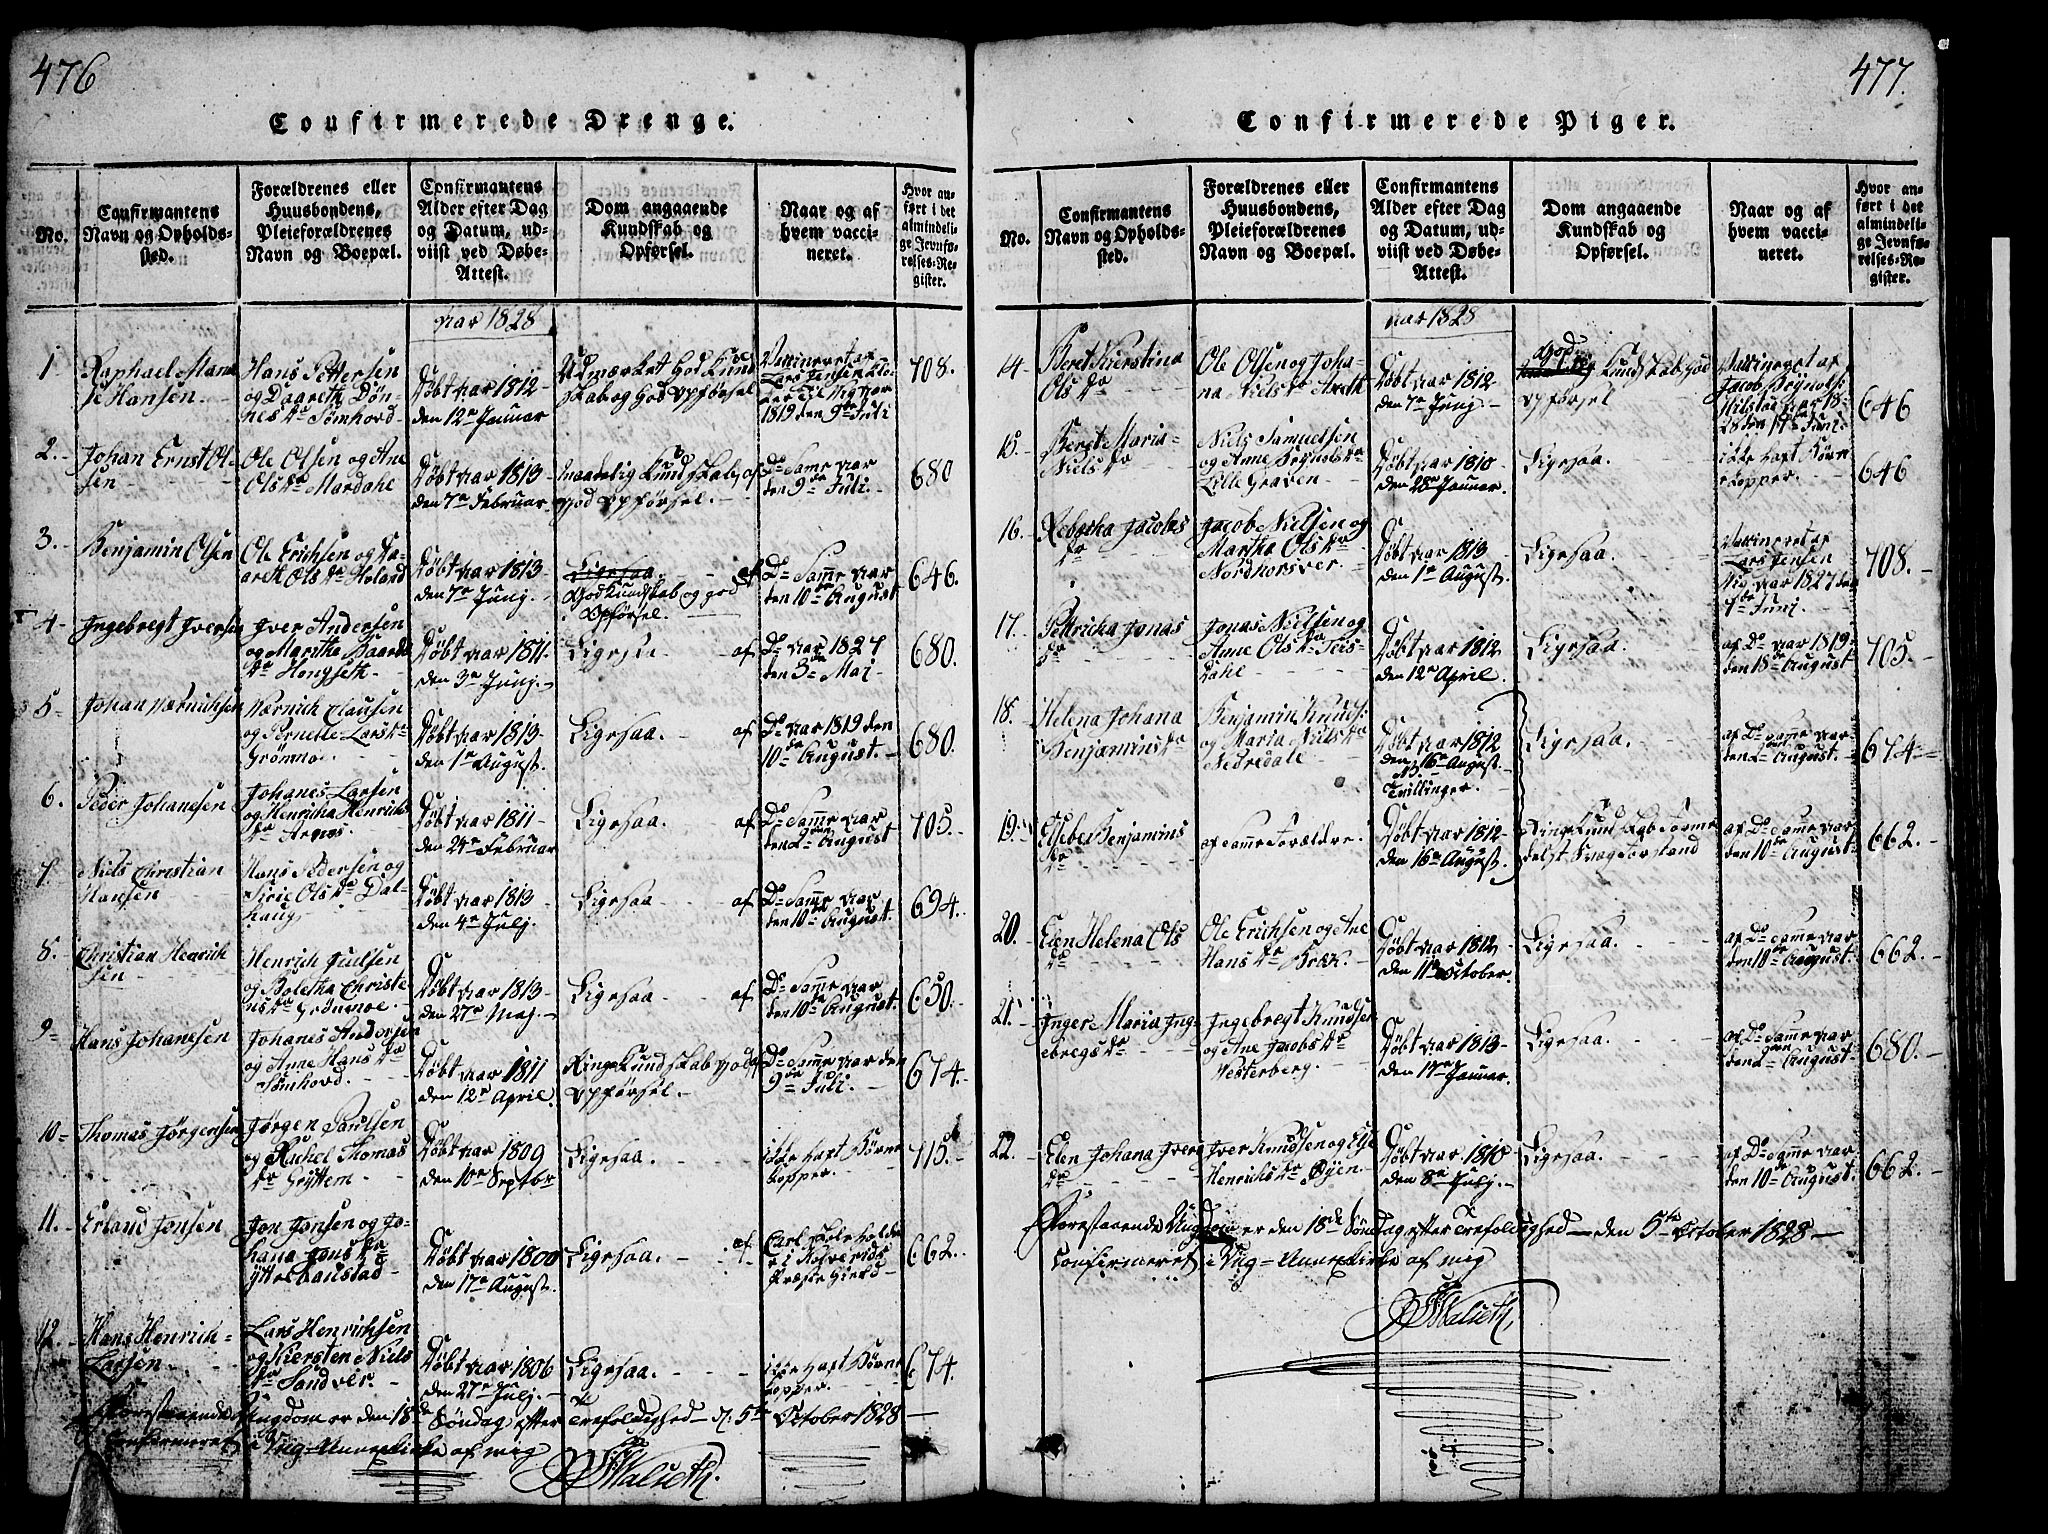 476
Confirmerede Drenge.
No.
Confirmantens
Navn og Opholds-
sted.
Forældrenes eller
Huusbondens,
Pleieforældrenes
Navn og Boepæl.
Confirmantens
Alder efter Dag
og Datum, ud-
viist ved Døbe-
Attest.
Dom angaaende
Kundskab og
Opførsel.
Naar og af
hvem vacci-
neret.
Hvor an-
ført i det
almindeli-
ge Jevnfø-
relses-Re-
gister.
Aar 1828
1
Raphael
Hansen
Hans Pettersen
og Daareth Døn-
nes Dr Sömhovd
Døbt Aar 1812
den 12te Januar
Udmærket God Kund
skab og God Opførsel
Vaccineret af
Lars Jensen
1819 den 9de Juli
708.
2.
Johan Ernst Ol-
sen
Ole Olsen og Ane
Ols Dr Mardahl
Døbt Aar 1813
den 7de Februar
Maadelig Kundskab
God Opførsel.
af Do Samme Aar
den 9de Juli
680
3.
Benjamin Olsen
Ole Erichsen og Da-
areth Ols Dr Höland
Døbt Aar 1813
den 7de Junj.
Ligesaa.
God Kundskab og god
Opførsel.
af Do Samme Aar
den 10de August
646.
4
Ingebregt Iversen
Iver Andersen
og Maritha Baards
Dr Hongseth
Døbt Aar 1811
den 3de Junj.
Ligesaa
af Do Aar 1827
den 3de Mai
680.
5
Johan Værnichsen
Værnich Clausen
og Pernelle Lars Dr
Grömno
Døbt Aar 1813
den 1te August.
Ligesaa.
af Do Aar 1819 den
10de August.
680.
6.
Peder Johanesen
Johanes Larsen
og Henricha Henrichs
Dr Arnøs.
Døbt Aar 1811
den 24de Februar
Ligesaa.
af Do Samme Aar
den 2den August
705.
7.
Niels Christian
Hansen
Hans Pedersen og
Sirie Ols Dr Dal-
haug
Døbt Aar 1813
den 4de Julj.
Ligesaa
af Do Samme Aar
den 10de August.
694.
8.
Christian Henrich
sen
Henrich Juelsen
og Boletha Christe
ns Dr Grönmoe.
Døbt Aar 1813
den 27de Maj.
Ligesaa
af Do Samme Aar
den 10de August.
650.
9
Hans Johanesen
Johanes Andersen
og Anne Hans Dr
Sömhovd.
Døbt Aar 1811
den 12te April.
Ringe Kundskab God
Opførsel.
af Do Samme Aar den
9de Juli.
674.
10
Thomas Jörgensen
Jörgen Poulsen
og Rachel Thomas
Dr Gryttem
Døbt Aar 1809
den 10de Septbr
Ligesaa.
ikke havt Børne
kopper.
715.
11.
Erland Jonsen
Jon Jonsen og Jo-
hana Jens Dr
Ytterbaustad
Døbt Aar 1800
den 17de August.
Ligesaa.
af Carl
i Kolvereids
Præste Gield
662.
12.
Hans Henrich
Larsen
Lars Henrichsen
og Kiersten Niels
Dr Sandver.
Døbt Aar 1806
den 27de Julj.
Ligesaa.
ikke haft Børne
kopper.
674.
Forestaaende Ungdom er den 18de Söndag efter Trefoldighed d. 5te October 1828
Confirmeret i Vug-Annex Kirke af mig
477.
Confirmerede Piger.
No.
Confirmantens
Navn og Opholds-
sted.
Forældrenes eller
Huusbondens,
Pleieforældrenes
Navn og Boepæl.
Confirmantens
Alder efter Dag
og Datum, ud-
viist ved Døbe-
Attest.
Dom angaaende
Kundskab og
Opførsel.
Naar og af
hvem vacci-
neret.
Hvor an-
ført i det
almindeli-
ge Jevnfø-
relses-Re-
gister.
Aar 1828
14
Beret Kierstina
Ols Dr
Ole Olsen og Joha-
na Niels Dr
Døbt Aar 1812
den 7de Junj.
God
Kundskab god
Opførsel
Vaccineret af
Jacob
Aar 18-
28 den 17de Juni
646
15.
Beret Maris
Niels Dr
Niels Samuelsen
og Anne Brynols Dr
Lille Graven
Døbt Aar 1810
den 28de Januar.
Ligesaa.
ikke haft Børne
kopper.
646
16.
Rebecka Jacobs
Dr
Jacob Nielsen og
Martha Ols Dr
Nordhorsver.
Døbt Aar 1813
den 1te August.
Ligesaa.
Vaccineret af
Lars Jensen
Aar 1827 den
7de Juni.
708.
17.
Pettricha Jonas
Dr
Jonas Nielsen og
Anne Ols Dr Teis-
dahl
Døbt Aar 1812
den 12te April.
Ligesaa.
af Do Aar 1819
den 18de August
705.
18.
Helena Johana
Benjamins Dr
Benjamin Knuds:
og Maria Niels Dr
Nedredale
Døbt Aar 1812
den 16de August.
NB.
Tvillinger.
Ligesaa.
af Do Samme Aar
den 2den August.
674
19.
Elsebe Benjamins
Dr
af samme Forældre.
Døbt Aar 1812
den 16de August.
Ringe Kundskab Forme-
delst Svag Forstand
af Do Samme Aar
den 10de August
662.
20.
Elen Helena Ols
Dr
Ole Erichsen og Ane
Hans Dr Bræk.
Døbt Aar 1812
den 11te October.
Ligesaa.
af Do Samme Aar
den 10de August.
662.
21.
Inger Maria Ing-
ebregs Dr
Ingebregt Knudsen
og Ane Jacobs Dr
Westerberg.
Døbt Aar 1813
den 17de Januar.
Ligesaa.
af Do Samme Aar
den 2den August
680.
22.
Elen Johana Ivers
Dr
Iver Knudsen og Else
Henrichs Dr Öyen.
Døbt Aar 1810
den 8de Julj.
Ligesaa.
af Do Samme Aar
den 10de August.
662.
Forestaaende Ungdom er den 18de Söndag efter Trefoldighed den 5te October 1828
Confirmeret i Vug-Annex Kirke af mig